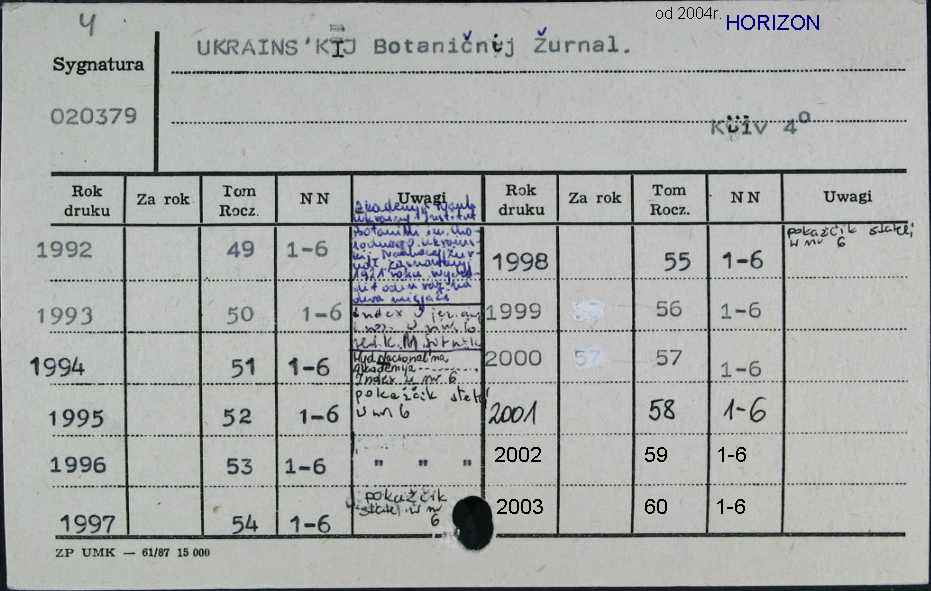 4
od 2004r. HORIZON
UKRAINS'KIJ Botaničnij Žurnal.
Sygnatura
020379
Kiiv 4º
Rok druku Za rok Tom Rocz. N N Uwagi Rok druku Za rok Tom Rocz. N N Uwagi
1992 49 1-6 1998 55 1-6 pokažčik statej w nr 6
1993 50 1-6 Index 1999 56 1-6
1994 51 1-6 Index w nr 6 2000 57 57 1-6
1995 52 1-6 pokažčik statej w nr 6 2001 58 1-6
1996 53 1-6 " " " 2002 59 1-6
1997 54 1-6 pokažčik statej w nr 6 2003 60 1-6
ZP UMK — 61/87 15 000